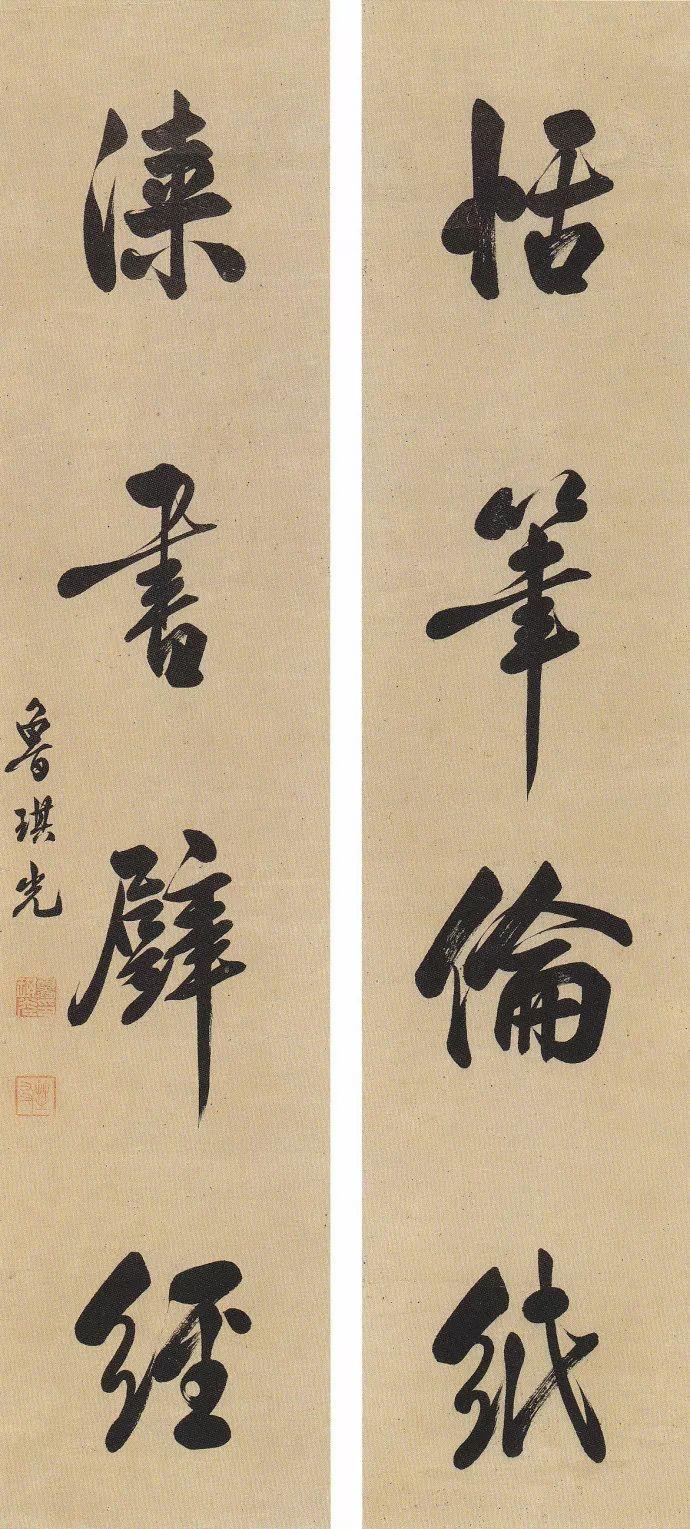 恬筆倫紙
漆書壁經
魯琪光